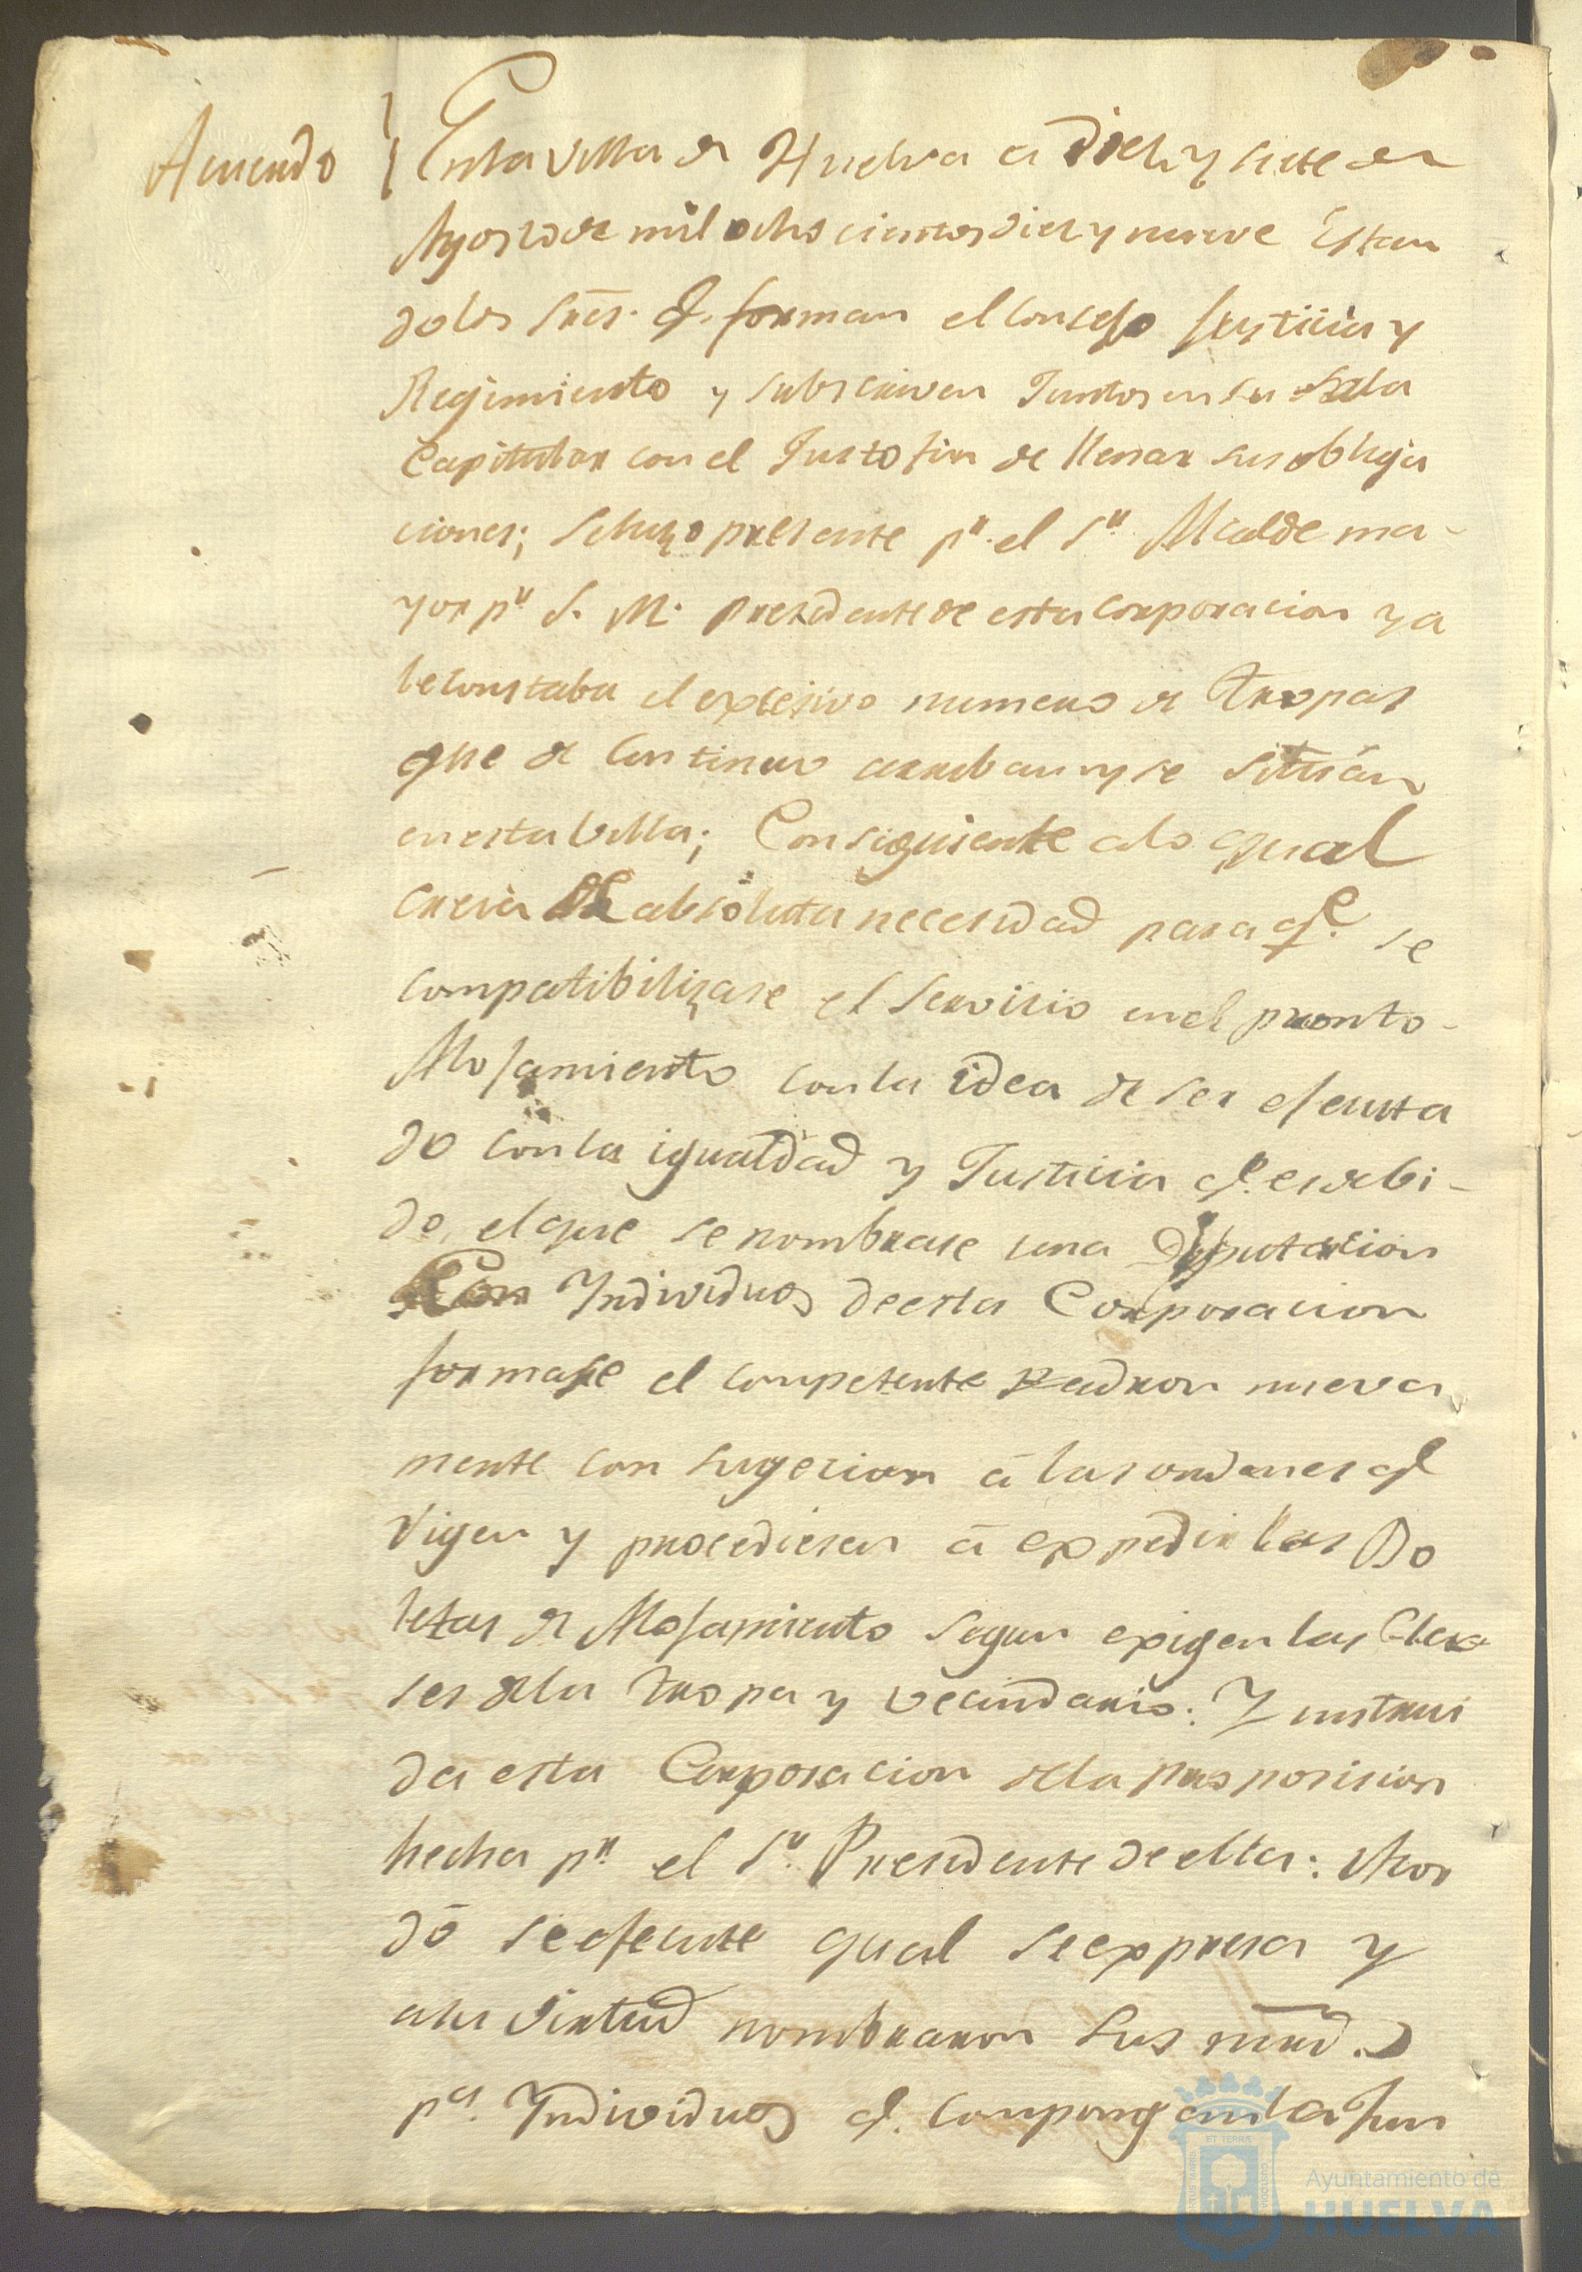 Acuerdo
En la Villa de Huelva a diez y siete de
Agosto de mil ocho cientos diez y nueve Estan
do los Sres. q. forman el Consejo Justicia y
Regimiento y subscriven Juntos en su Sala
Capitular con el Justo fin de llenar sus obliga
ciones; se hizo presente pr. el Sr. Alcalde ma-
yor pr. S. M. Presidente de esta corporacion ya
le constaba el excesivo numero de tropas
que de Continuo arriban y se sitúan
en esta Villa; Consiguiente a lo qual
creia de absoluta necesidad para qe. se
compatibilizase el servisio en el pronto-
Alojamiento con la idea de ser ejecuta
do con la igualdad y Justicia q. es debi-
do, el que se nombrase una Diputacion
Con Individuos de esta Corporacion
formase el competente Padron nueva
mente con sugecion a las ordenes qe
Vigen y procediesen a expedir las Bo
letas de Alojamiento segun exigen las Cla
ses de la tropa y vecindario: Y instrui
da esta Corporacion de la proposision
hecha pr. el Sr. Presidente de ella: Acor
dó se ejecute qual se expresa y
a su Virtud nombraron sus mrds.
pa. Individuos q. compongan la Jun
Ayuntamiento de
HUELVA